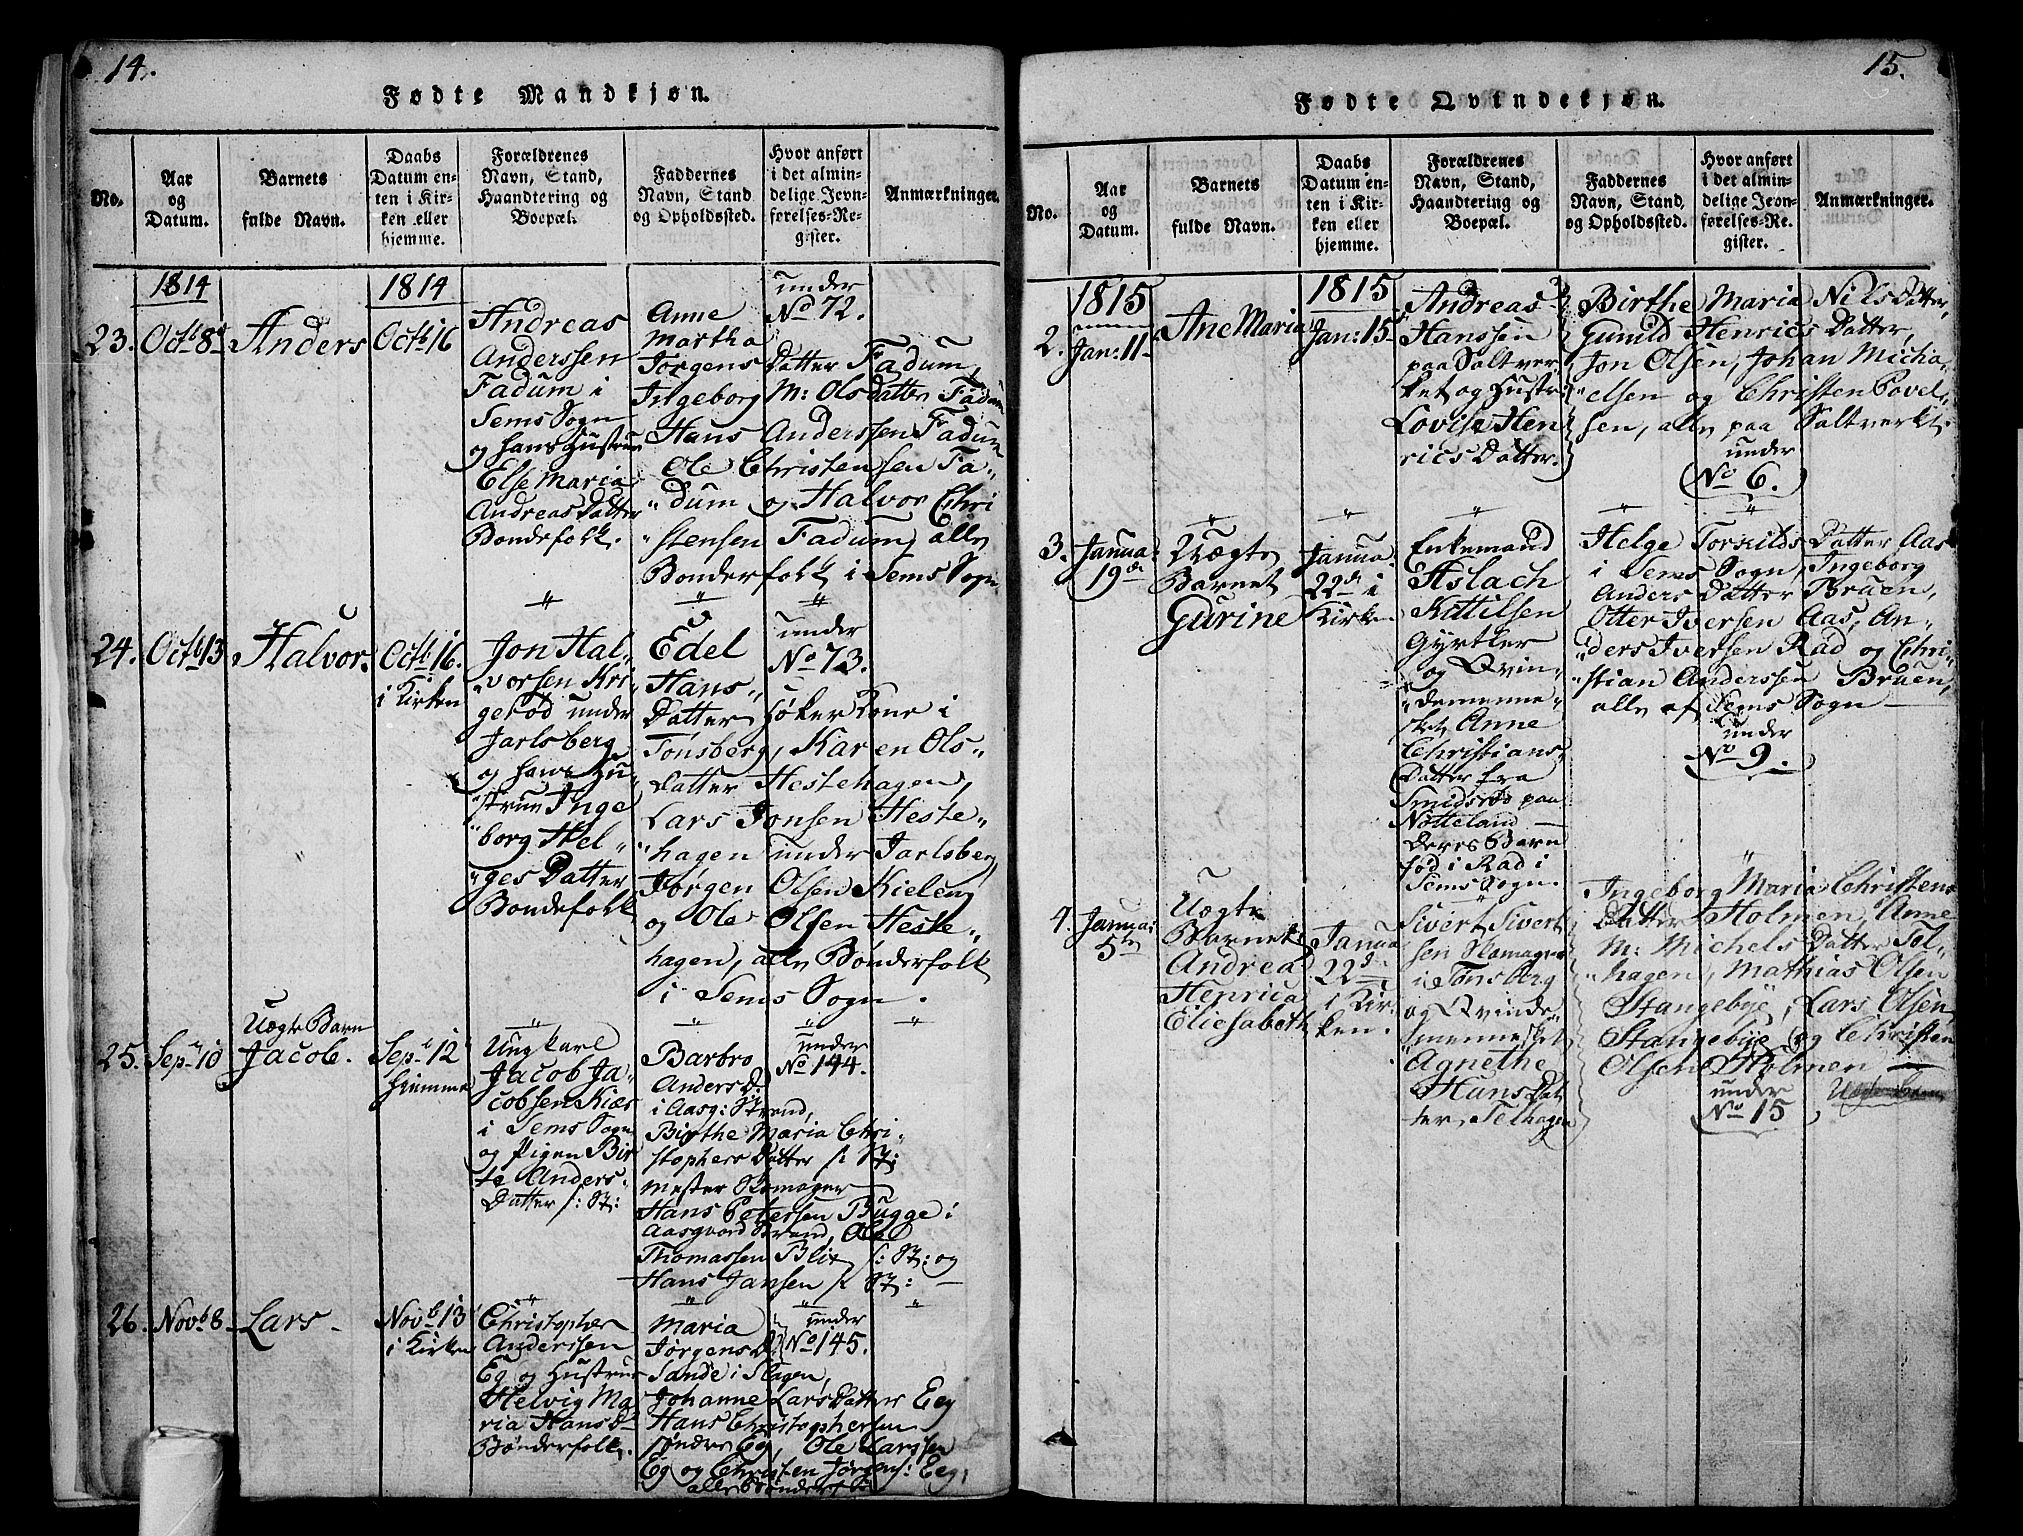 14.
Fødte Mandkjøn.
No.
Aar
og
Datum.
Barnets
fulde Navn.
Daabs
Datum en-
ten i Kir-
ken eller
hjemme.
Forældrenes
Navn, Stand,
Haandtering og
Boepæl.
Faddernes
Navn, Stand
og Opholdssted.
Hvor anført
i det almin-
delige Jevn-
førelses-Re-
gister.
Anmærkninger.
1814
23. Octb 8de
Anders
1814
Octb 16
Andreas
Anderssen
Fadum i
Sems Sogn
og hans Hustrue
Else Maria
Andreas Datter
Bondefolk.
under
No 72.
Anne
Martha
Jørgens Datter Fadum,
Ingeborg M: Ols Datter Fadum
Hans Anderssen Fadum
Ole Christensen Fa-
"dum og Halvor Chri
stensen Fadum, alle
Bønderfolk i Sems Sogn
24. Octb 13
Halvor.
Octb 16.
i Kirken
Jon Hal-
"vorsen Kri-
gerød under
Jarlsberg
og hans Hu-
"strue Inge
"borg Hel-
"ges Datter
Bondefolk
under
No 73.
Edel
Hans-
Datter Høker Kone i
Tønsberg, Karen Ols-
Datter Hestehagen,
Lars Jonsen Heste-
"hagen under Jarlsberg
Jørgen Olsen Kieleng
og Ole Olsen Heste-
hagen, alle Bønderfolk
i Sems Sogn.
25. Sep. 10
Uægte Barn
Jacob.
Sep. 12
hiemme
Ungkarl
Jacob Ja-
cobsen Kiær
i Sems Sogn
og Pigen Bir
te Anders-
Datter /: St:
under
No 144.
Barbro
Anders D.
i Aasg: Strand,
Birthe Maria Chri-
stophers Datter /: St:
Mester Skomager
Hans Petersen Bugge i
Aasgaard Strand, Ole
Thomassen Blix /: St: og
Hans Jansen /: St:
26. Novb 8
Lars
Novb 13
i Kirken
Christopher
Anderssen
Eg og Hustrue
Helvig Ma
ria Hans D.
Bønderfolk.
under
No 145.
Maria
Jørgens D.
Sande i Slagen,
Johanne Lars Datter Eeg
Hans Christophersen
søndre Eg, Ole Larssen
Eg og Christen Jørgens: Eeg,
alle Bønderfolk
15.
Fødte Qvindekjøn.
No.
Aar
og
Datum.
Barnets
fulde Navn.
Daabs
Datum en-
ten i Kir-
ken eller
hjemme.
Forældrenes
Navn, Stand,
Haandtering og
Boepæl.
Faddernes
Navn, Stand
og Opholdssted.
Hvor anført
i det almin-
delige Jevn-
førelses-Re-
gister.
Anmærkninger.
1815
2. Jan: 11
Ane Maria
1815
Jan: 15
Andreas
Hanssen
paa Saltver-
ket og Hustr:
Lovise Hen
rics Datter.
Birthe Maria Nils Datter,
Gunild Henrics Datter,
Jon Olsen, Johan Micha-
"elsen og Christen Povel-
sen, alle paa Saltverket.
under
No 6.
3. Janua:
19de
Uægte
Barnet
Gurine
Janua.
22de i
Kirken
Enkemand
Aslach
Kittilsen
Gyrtler
og Qvin-
"demenne-
sket Anne
Christians
Datter fra
Smidsrø paa
Nøtteland
Deres Barn
fød i Rad i
Sems Sogn.
Helge Torkilds Datter Aas
i Sems Sogn, Ingeborg
Anders Datter Bruen,
Otter Iversen Aas, An-
"ders Iversen Rad og Chri-
"stian Anderssen Bruen,
alle af Sems Sogn
under
No 9.
4. Janua:
5te
Uægte
Barnet
Andrea
Henrica
Eliesabeth
Janua
22de
i Kir-
ken.
Sivert Sivert
sen Skomager
i Tønsberg
og Qvinde-
mennesket
Agnethe
Hans Dat
ter, Telhagen
Ingeborg Maria Christens
Datter Holmen, Anne
M: Michels Datter Tel-
"hagen, Mathias Olsen
Stangebye, Lars Olsen
Stangebye og Christen
Olsen Holmen
under
No 15